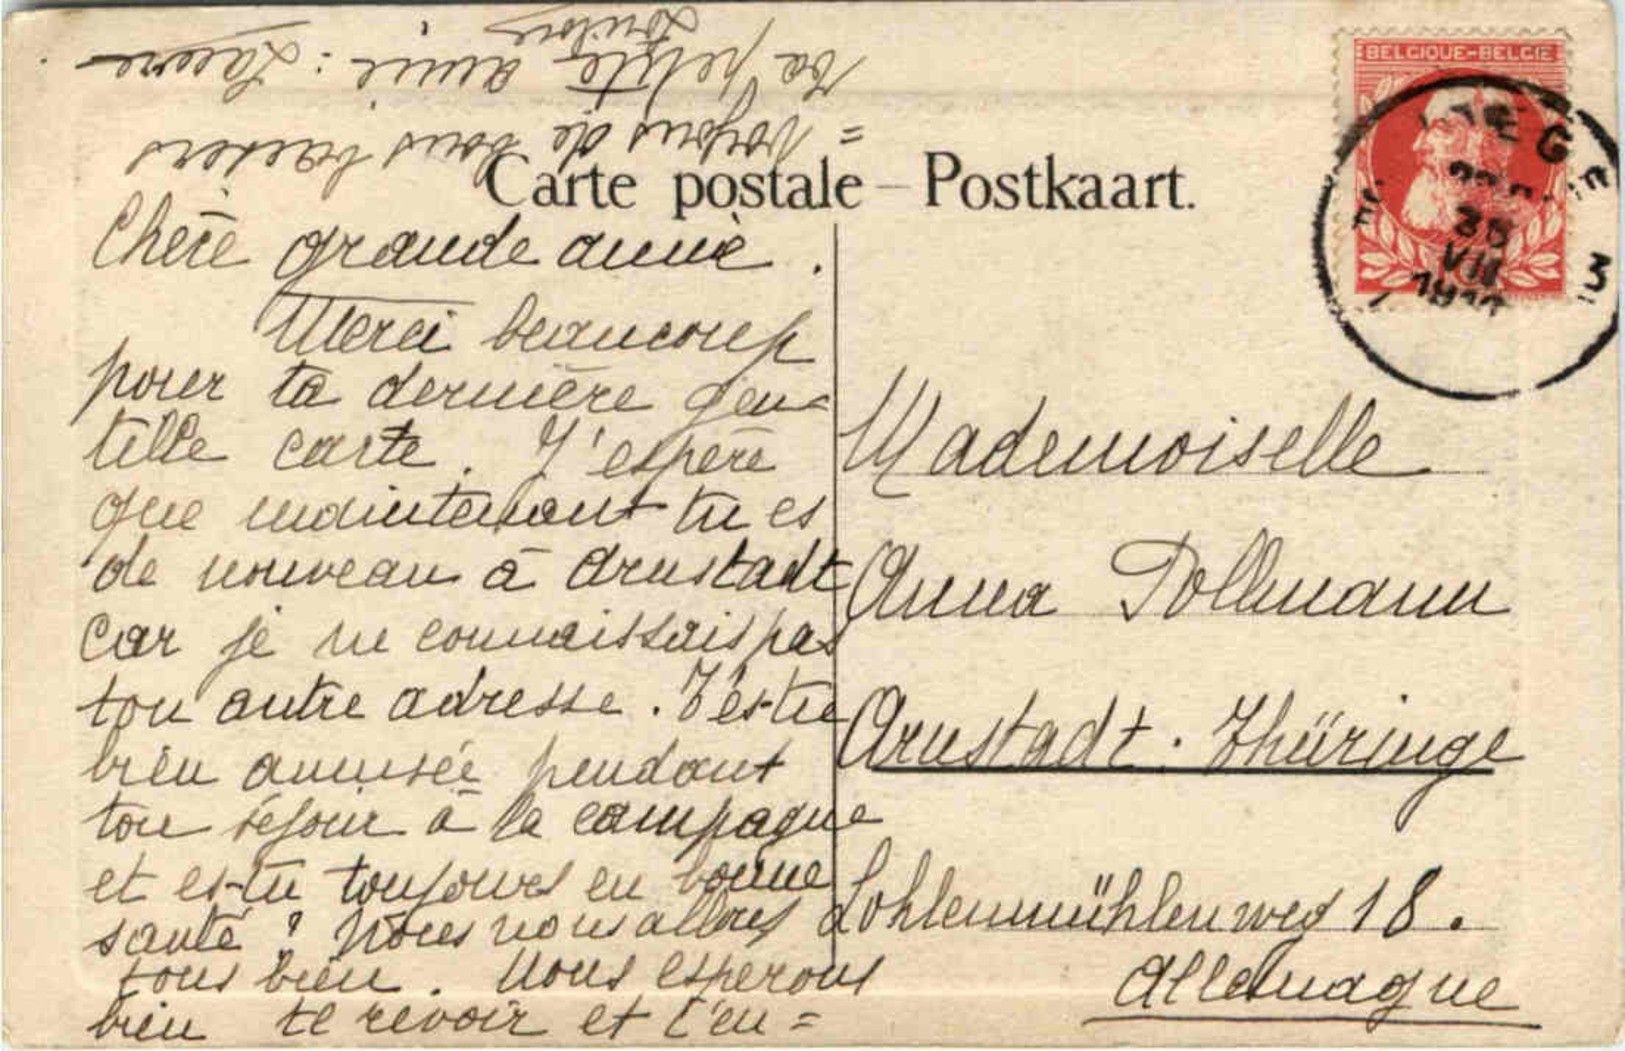 BELGIQUE-BELGIE
Carte postale – Postkaart.
Chère grande amie.
Merci beaucoup
pour ta dernière gen=
tille carte. J'espère
que maintenant tu es
de nouveau à Arnstadt
car je ne connaissais pas
ton autre adresse. T'es-tu
bien amusée pendant
ton séjour à la campagne
et es-tu toujours en bonne
santé? Nous nous allons
tous bien. Nous esperons
bien te revoir et t'en=
=voyons de bons baisers
Ta petite amie:
Mademoiselle
Anna Pollmann
Arnstadt. Thüringe
Lohlenmühlenweg 18.
Allemagne